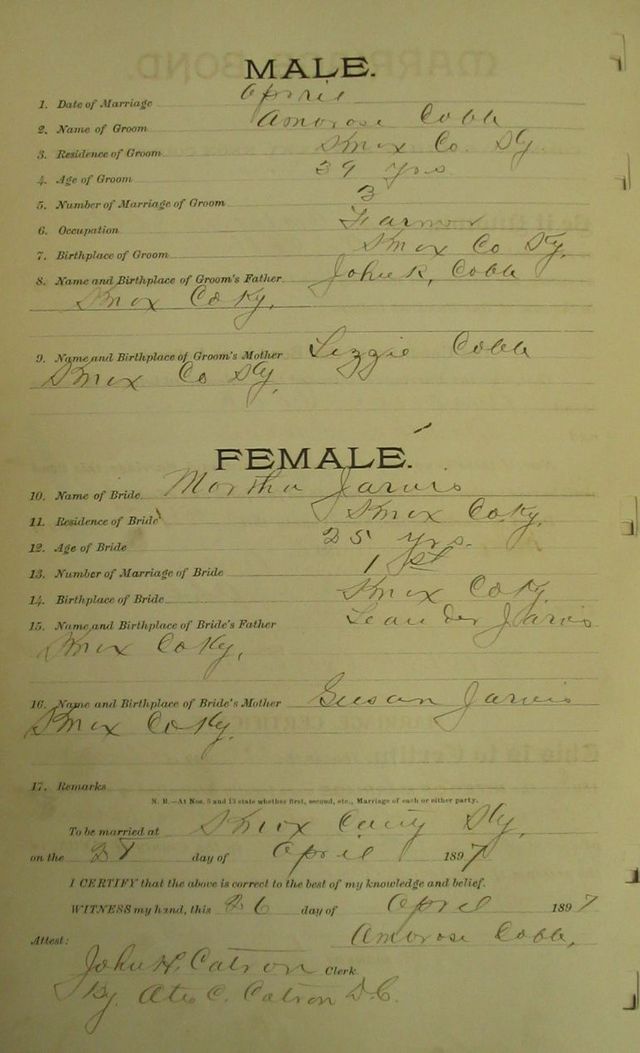 MALE.
1. Date of Marriage April
2. Name of Groom Ambrose Cobb
3. Residence of Groom Knox Co. Ky.
4. Age of Groom 39 yrs
5. Number of Marriage of Groom 3
6. Occupation Farmer
7. Birthplace of Groom Knox Co Ky.
8. Name and Birthplace of Groom's Father John R. Cobb
Knox Co Ky.
9. Name and Birthplace of Groom's Mother Lizzie Cobb
Knox Co Ky,
FEMALE.
10. Name of Bride Martha Jarvis
11. Residence of Bride Knox Co. Ky.
12. Age of Bride 25 yrs.
13. Number of Marriage of Bride 1 st
14. Birthplace of Bride Knox Co Ky.
15. Name and Birthplace of Bride's Father Leander Jarvis
Knox Co Ky,
16. Name and Birthplace of Bride's Mother Susan Jarvis
Knox Co Ky.
17. Remarks
N. B.—At Nos. 5 and 13 state whether first, second, etc., Marriage of each or either party.
To be married at Knox Ky,
on the day of April 1897
I CERTIFY that the above is correct to the best of my knowledge and belief.
WITNESS my hand, this 26 day of April 1897
Ambrose Cobb,
Attest:
John H. Catron Clerk
By. C. Catron D.C.